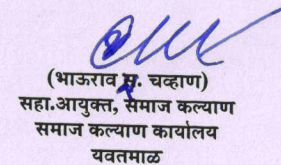 (भाऊराव सु. चव्हाण)
सहा.आयुक्त, समाज कल्याण
समाज कल्याण कार्यालय
यवतमाळ